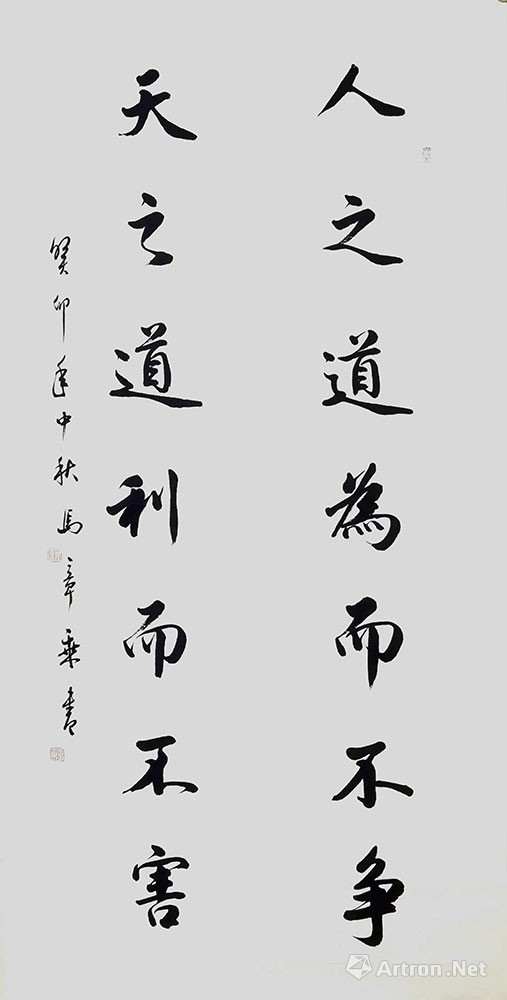 人之道為而不争
天之道利而不害
癸卯年中秋馬章乘書
Artron.Net